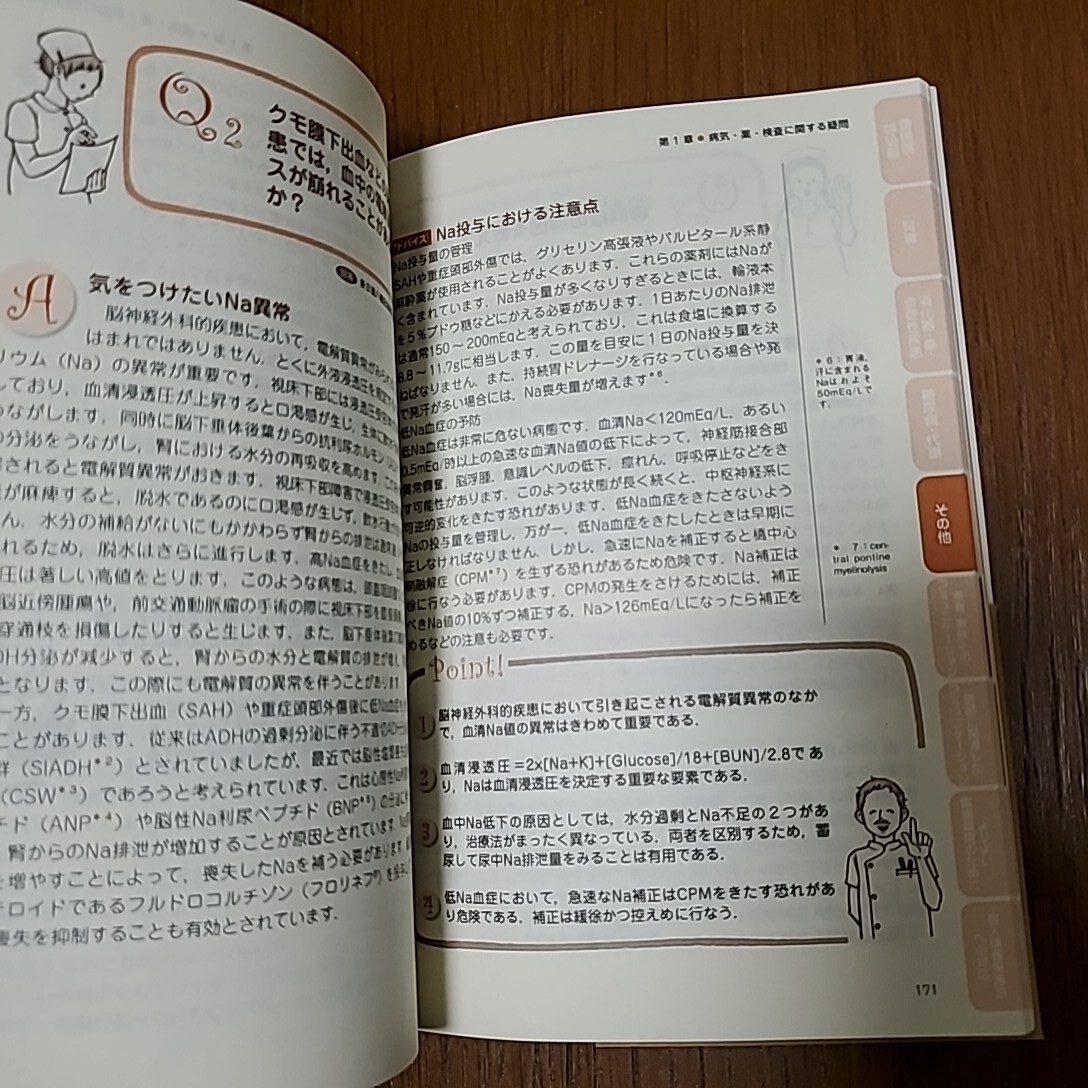 Q2
クモ膜下出血などの
患では，血中の電
スが崩れることが
か？
A
気をつけたいNa異常
脳神経外科的疾患において，電解質異常が
はまれではありません．とくに外液浸透圧を
リウム（Na）の異常が重要です．視床下部には浸透圧
しており，血清浸透圧が上昇すると口渇感が生じ，生体に
うながします．同時に脳下垂体後葉からの抗利尿ホルモン
の分泌をうながし，腎における水分の再吸収を高めます．
されると電解質異常がおきます．視床下部障害で浸透圧
が麻痺すると，脱水であるのに口渇感が生じず，飲水行動
ん．水分の補給がないにもかかわらず腎からの排泄は
れるため，脱水はさらに進行します．高Na血症をきたし，
圧は著しい高値をとります．このような病態は，頭蓋咽頭腫
脳近傍腫瘍や，前交通動脈瘤の手術の際に視床下部を
穿通枝を損傷したりすると生じます．また，脳下垂体後葉
DH分泌が減少すると，腎からの水分と電解質の排泄が
となります．この際にも電解質の異常を伴うことがあります．
一方，クモ膜下出血（SAH）や重症頭部外傷後に低Na血症
ことがあります．従来はADHの過剰分泌に伴う不適切
群（SIADH*2）とされていましたが，最近では脳性塩類
（CSW*3）であろうと考えられています．これは心房性Na利尿
チド（ANP*4）や脳性Na利尿ペプチド（BNP*5）の分泌
腎からのNa排泄が増加することが原因とされています．
を増やすことによって，喪失したNaを補う必要があります．
テロイドであるフルドロコルチゾン（フロリネフ®）を投与
喪失を抑制することも有効とされています．
第1章●病気・薬・検査に関する疑問
アドバイス Na投与における注意点
Na投与量の管理
SAHや重症頭部外傷では，グリセリン高張液やバルビタール系静
麻酔薬が使用されることがよくあります．これらの薬剤にはNaが
く含まれています．Na投与量が多くなりすぎるときには，輸液本
を5％ブドウ糖などにかえる必要があります．1日あたりのNa排泄
は通常150～200mEqと考えられており，これは食塩に換算する
8.8～11.7gに相当します．この量を目安に1日のNa投与量を決
ねばなりません．また，持続胃ドレナージを行なっている場合や発
で発汗が多い場合には，Na喪失量が増えます*6．
低Na血症の予防
低Na血症は非常に危ない病態です．血清Na<120mEq/L，あるい
0.5mEq/時以上の急速な血清Na値の低下によって，神経筋接合部
異常興奮，脳浮腫，意識レベルの低下，痙れん，呼吸停止などをき
す可能性があります．このような状態が長く続くと，中枢神経系に
可逆的変化をきたす恐れがあります．低Na血症をきたさないよう
Naの投与量を管理し，万が一，低Na血症をきたしたときは早期に
正しなければなりません．しかし，急速にNaを補正すると橋中心
鞘融解症（CPM*7）を生ずる恐れがあるため危険です．Na補正は
徐に行なう必要があります．CPMの発生をさけるためには，補正
べきNa値の10％ずつ補正する，Na>126mEq/Lになったら補正を
めるなどの注意も必要です．
●6：胃液，
汗に含まれる
Naはおよそ
50mEq/Lで
す．
その他
●7：cen-
tral pontine
myelinolysis
Point!
1 脳神経外科的疾患において引き起こされる電解質異常のなか
で，血清Na値の異常はきわめて重要である．
2 血清浸透圧=2x[Na+K]+[Glucose]/18+[BUN]/2.8であ
り，Naは血清浸透圧を決定する重要な要素である．
3 血中Na低下の原因としては，水分過剰とNa不足の2つがあ
り，治療法がまったく異なっている．両者を区別するため，蓄
尿して尿中Na排泄量をみることは有用である．
4 低Na血症において，急速なNa補正はCPMをきたす恐れがあ
り危険である．補正は緩徐かつ控えめに行なう．
171